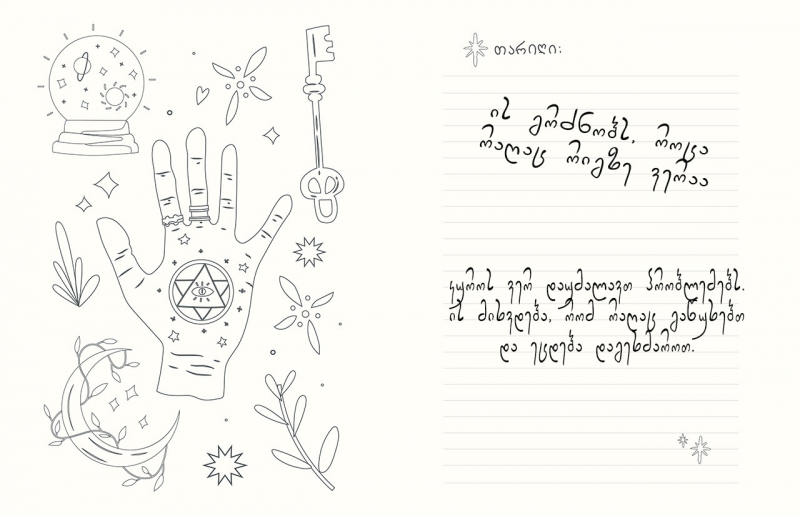 თარიღი:
ის გრძნობს, როცა
რაღაც რიგზე ვერაა
კყუროს ვერ დაუმალავთ პრობლემებს.
ის მიხვდება, რომ რაღაც გაწუხებთ
და ეცდება დაგეხმაროთ.